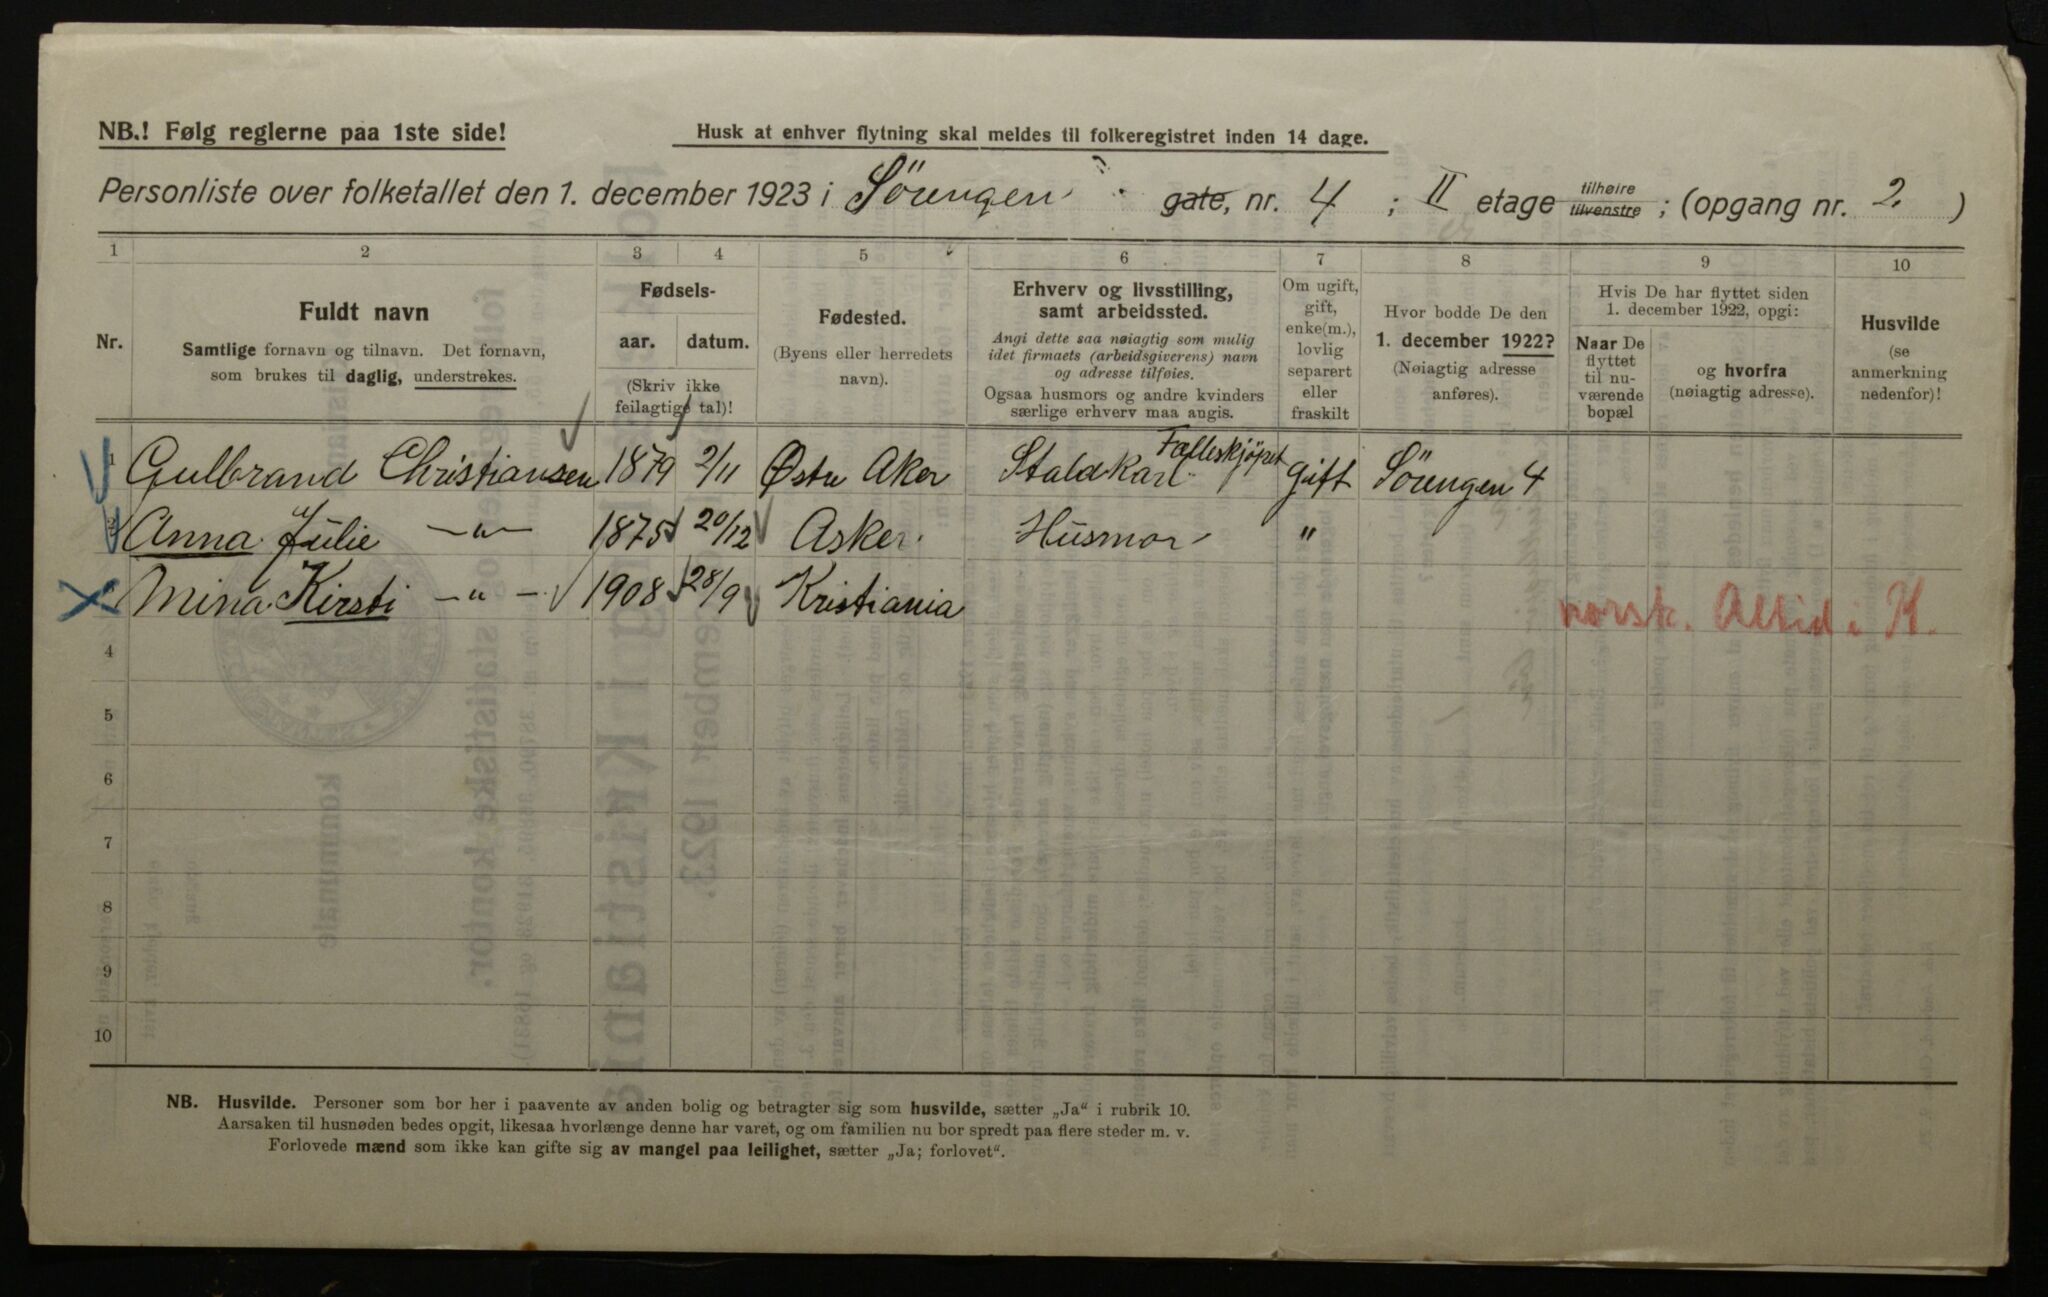 NB.! Følg reglerne paa 1ste side!
Husk at enhver flytning skal meldes til folkeregistret inden 14 dage.
Personliste over folketallet den 1. december 1923 i Sörengen gate, nr. 4 ; II etage tilhøire tilvenstre ; (opgang nr. 2 )
1 2 3 4 5 6 7 8 9 10
Nr.
Fuldt navn
Samtlige fornavn og tilnavn. Det fornavn,
som brukes til daglig, understrekes.
Fødsels-
aar. datum.
(Skriv ikke
feilagtige tal)!
Fødested.
(Byens eller herredets
navn).
Erhverv og livsstilling,
samt arbeidssted.
Angi dette saa nøiagtig som mulig
idet firmaets (arbeidsgiverens) navn
og adresse tilføies.
Ogsaa husmors og andre kvinders
særlige erhverv maa angis.
Om ugift,
gift,
enke(m.),
lovlig
separert
eller
fraskilt
Hvor bodde De den
1. december 1922?
(Nøiagtig adresse
anføres).
Hvis De har flyttet siden
1. december 1922, opgi:
Naar De
flyttet
til nu-
værende
bopæl
og hvorfra
(nøiagtig adresse).
Husvilde
(se
anmerkning
nedenfor)!
1 Gulbrand Christiansen 1879 2/11 Østre Aker Staldkarl Fælleskjöpet Gift Sörengen 4
2 Anna Julie —"— 1875 20/12 Asker Husmor "
Mina Kirsti —"— 1908 28/9 Kristiania norsk. Altid i K.
4
5
6
7
8
9
10
NB. Husvilde. Personer som bor her i paavente av anden bolig og betragter sig som husvilde, sætter „Ja“ i rubrik 10.
Aarsaken til husnøden bedes opgit, likesaa hvorlænge denne har varet, og om familien nu bor spredt paa flere steder m. v.
Forlovede mænd som ikke kan gifte sig av mangel paa leilighet, sætter „Ja; forlovet“.